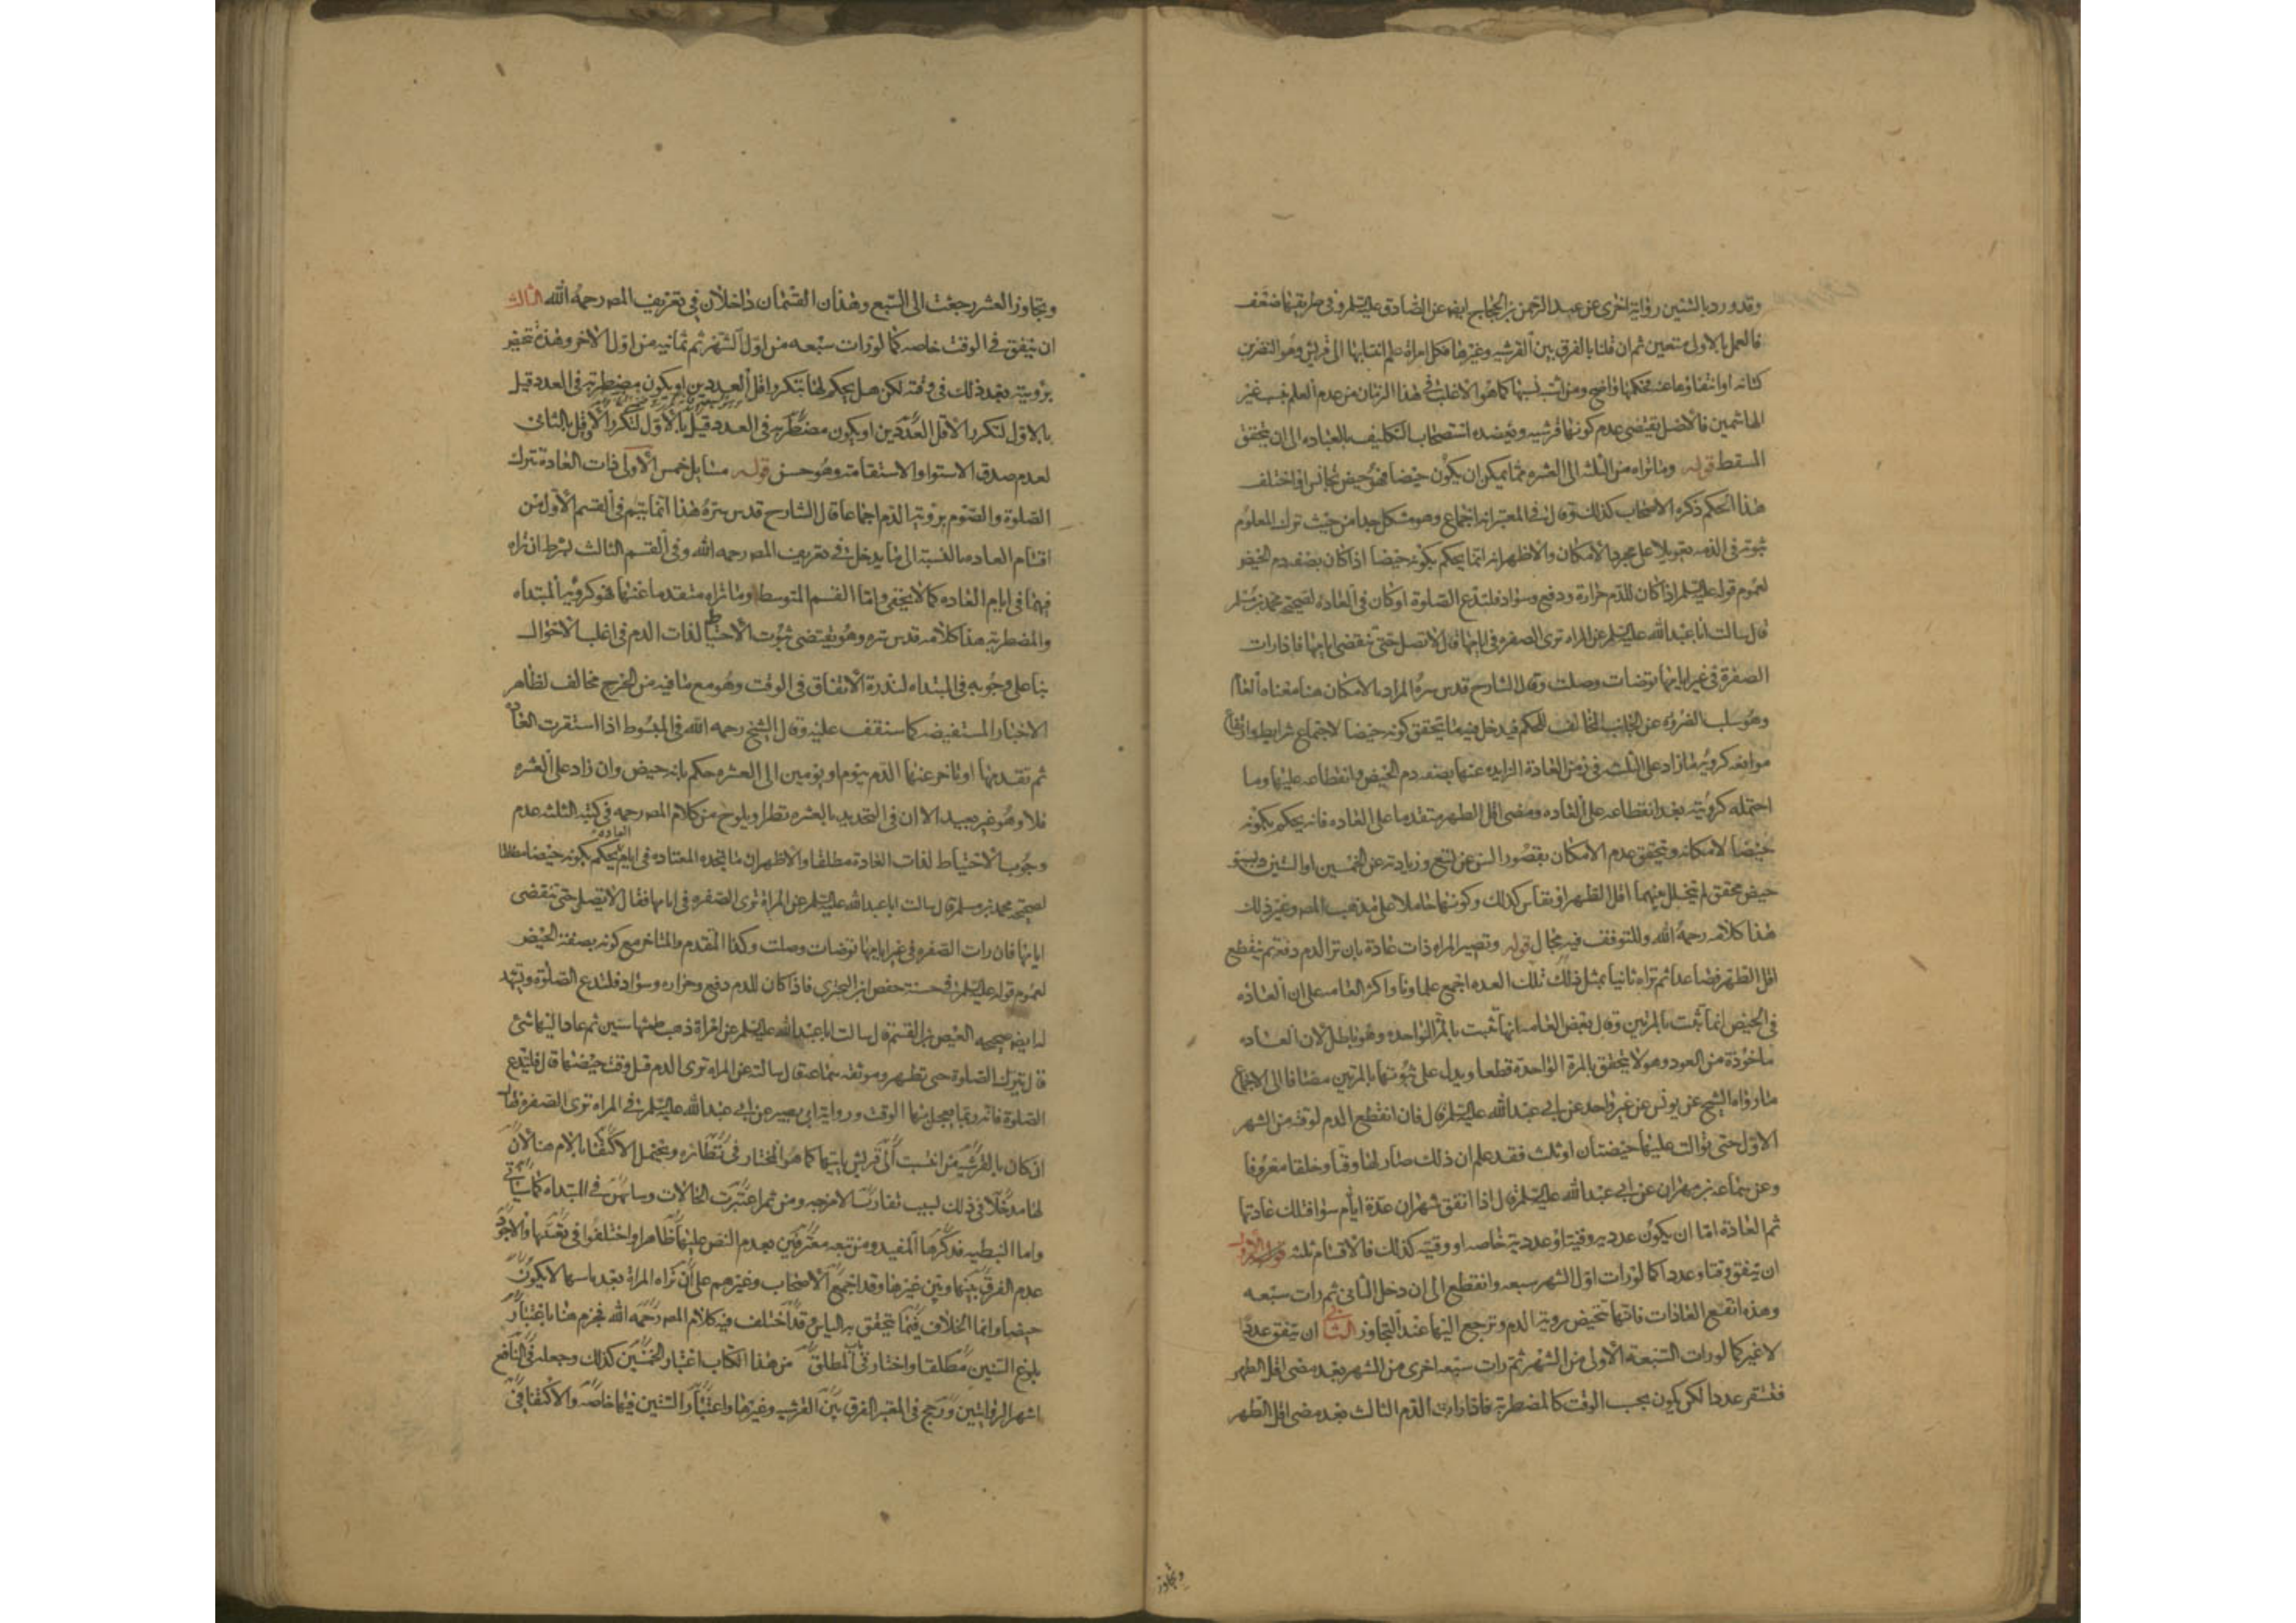 وقد ورد بالستين رواية اخرى عن عبد الرحمن بن الحجاج ايضا عن الصادق عليه السلم وفي طريقها ضعف
فالعمل بالاول متعين ثم ان قلنا بالفرق بين القرشيه وغيرها فكل امراة علم انتسابها الى قريش وهو النضر بن
كنانه او انتفاؤها عنه فحكمها واضح ومن اشتبه نسبها كما هو الاغلب في هذا الزمان من عدم العلم بنسب غير
الهاشميين فالاصل يقتضي عدم كونها قرشيه ويعضده استصحاب التكليف بالعباده الى ان يتحقق
المسقط قوله وما تراه من الثلثه الى العشره مما يمكن ان يكون حيضا فهو حيض تجانس او اختلف
هذا الحكم ذكره الاصحاب كذلك وقال في المعتبر انه اجماع وهو مشكل جدا من حيث ترك المعلوم
ثبوته في الذمه تعويلا على مجرد الامكان والاظهر انه انما يحكم بكونه حيضا اذا كان بصفه دم الحيض
لعموم قوله عليه السلم اذا كان للدم حرارة ودفع وسواد فلتدع الصلوة او كان في العاده لصحيحة محمد بن مسلم
قال سالت ابا عبد الله عليه السلم عن المراه ترى الصفره في ايامها قال لا تصل حتى تنقضي ايامها فاذا رات
الصفرة في غير ايامها توضات وصلت وقال الشارح قدس سره المراد بالامكان هنا معناه العام
وهو سلب الضروره عن الجانب المخالف للحكم فيدخل فيه ما يتحقق كونه حيضا لاجتماع شرايطه وارتفاع
موانعه كرؤية ما زاد على الثلثه في زمن العادة الزايده عنها بصفه دم الحيض وانقطاعه عليها وما
احتمله كرؤيته بعد انقطاعه على العاده ومضى اقل الطهر متقدما على العاده فانه يحكم بكونه
حيضا لامكانه ويتحقق عدم الامكان بقصور السن عن تسع وزيادته عن الخمسين او الستين وبسبق
حيض محقق لم يتخلل بينهما اقل الطهر او نفاس كذلك وكونها حاملا على مذهب المصـ وغير ذلك
هذا كلامه رحمه الله وللتوقف فيه مجال قوله وتصير المراه ذات عادة بان ترا الدم دفعة ثم ينقطع
اقل الطهر فصاعدا ثم تراه ثانيا بمثل ذلك تلك العده اجمع علماونا واكثر العامه على ان العاده
في الحيض انما تثبت بالمرتين وقال بعض العامه انها تثبت بالمرة الواحده وهو باطل لان العاده
ماخوذة من العود وهو لا يتحقق بالمرة الواحدة قطعا ويدل على ثبوتها بالمرتين مضافا الى الاجماع
ما رواه الشيخ عن يونس عن غير واحد عن ابي عبد الله عليه السلم قال فان انقطع الدم لوقته من الشهر
الاول حتى توالت عليها حيضتان او ثلث فقد علم ان ذلك صار لها وقتا وخلقا معروفا
وعن سماعه بن مهران عن ابي عبد الله عليه السلم قال اذا اتفق شهران عدة ايام سوا فتلك عادتها
ثم العادة اما ان يكون عدديه وقتيه او عددية خاصه او وقتية كذلك فالاقسام ثلثه الاول
ان يتفق وقتا وعددا كما لو رات اول الشهر سبعه وانقطع الى ان دخل الثاني ثم رات سبعه
وهذه انفع العادات فانها تتحيض بروية الدم وترجع اليها عند التجاوز الثاني ان يتفق عددا
لا غير كما لو رات السبعة الاولى من الشهر ثم رات سبعه اخرى من الشهر بعد مضى اقل الطهر
فتستقر عددا لكن يكون بحسب الوقت كالمضطربة فاذا رات الدم الثالث بعد مضى اقل الطهر
وتجاوز
وتجاوز العشر رجعت الى السبع وهذان القسمان داخلان في تعريف المصـ رحمه الله الثالث
ان يتفق في الوقت خاصه كما لو رات سبعه من اول الشهر ثم ثمانيه من اول الاخر وهذه تتحيض
برويته بعد ذلك في وقته لكن هل يحكم لها بتكرر اقل العددين او يكون مضطربة في العدد قيل
بالاول لتكرر الاقل العددين او يكون مضطربه في العدد قيل بالاول لتكرر الاقل وقيل بالثاني
لعدم صدق الاستوا والاستقامة وهو حسن قوله مسايل خمس الاولى ذات العادة تترك
الصلوة والصوم بروية الدم اجماعا قال الشارح قدس سره هذا انما يتم في القسم الاول من
اقسام العاده بالنسبة الى ما يدخل في تعريف المصـ رحمه الله وفي القسم الثالث بشرط ان تراه
فيهما في ايام العاده كما لا يخفى واما القسم المتوسط وما تراه متقدما عنها فهو كروية المبتداه
والمضطربه هذا كلامه قدس سره وهو يقتضي ثبوت الاحتياط لذات الدم في اغلب الاحوال
بنا على وجوبه في المبتداه لندرة الاتفاق في الوقت وهو مع ما فيه من الحرج مخالف لظاهر
الاخبار المستفيضه كما ستقف عليه وقال الشيخ رحمه الله في المبسوط اذا استقرت العاده
ثم تقدمها او تاخر عنها الدم بيوم او يومين الى العشره حكم بانه حيض وان زاد على العشره
فلا وهو غير بعيد الا ان في التحديد بالعشره نظرا ويلوح من كلام المصـ رحمه في كتبه الثلثه عدم
وجوب الاحتياط لذات العادة مطلقا والاظهر ان ما تجده المعتاده في ايام العاده يحكم بكونه حيضا مطلقا
لصحيحة محمد بن مسلم قال سالت ابا عبد الله عليه السلم عن المراة ترى الصفره في ايامها فقال لا تصل حتى تنقضي
ايامها فان رات الصفره في غير ايامها توضات وصلت وكذا المتقدم والمتاخر مع كونه بصفة الحيض
لعموم قوله عليه السلم في حسنة حفص بن البختري فاذا كان للدم دفع وحراره وسواد فلتدع الصلوة ويشهد
له ايضا صحيحه العيص بن القسم قال سالت ابا عبد الله عليه السلم عن امراة ذهب طمثها سنين ثم عاد اليها شئ
قال تترك الصلوة حتى تطهر وموثقه سماعة قال سالته عن المراه ترى الدم قبل وقت حيضها قال فلتدع
الصلوة فانه ربما تعجل بها الوقت ورواية ابي بصير عن ابي عبد الله عليه السلم في المراه ترى الصفره فقال
ان كان بالقرشيه من انتسبت الى قريش بابيها كما هو المختار في نظائره ويحتمل الاكتفا بالام هنا لان
لها مدخلا في ذلك بسبب تقارب الامزجه ومن ثم اعتبرت الخالات في المبتداه كما سياتي
واما النبطيه فذكرها المفيد ومن تبعه معترفين بعدم النص عليها ظاهرا واختلفوا في تعينها والاجود
عدم الفرق بينها وبين غيرها وقد اجمع الاصحاب وغيرهم على ان ما تراه المراة بعد ياسها لا يكون
حيضا وانما الخلاف فيما يتحقق به الياس وقد اختلف فيه كلام المصـ رحمه الله فجزم هنا باعتبار
بلوغ الستين مطلقا واختار في باب الطلاق من هذا الكتاب اعتبار الخمسين كذلك وجعله في النافع
اشهر الروايتين ورجح في المعتبر الفرق بين القرشيه وغيرها واعتبار الستين فيها خاصه والاكتفا في